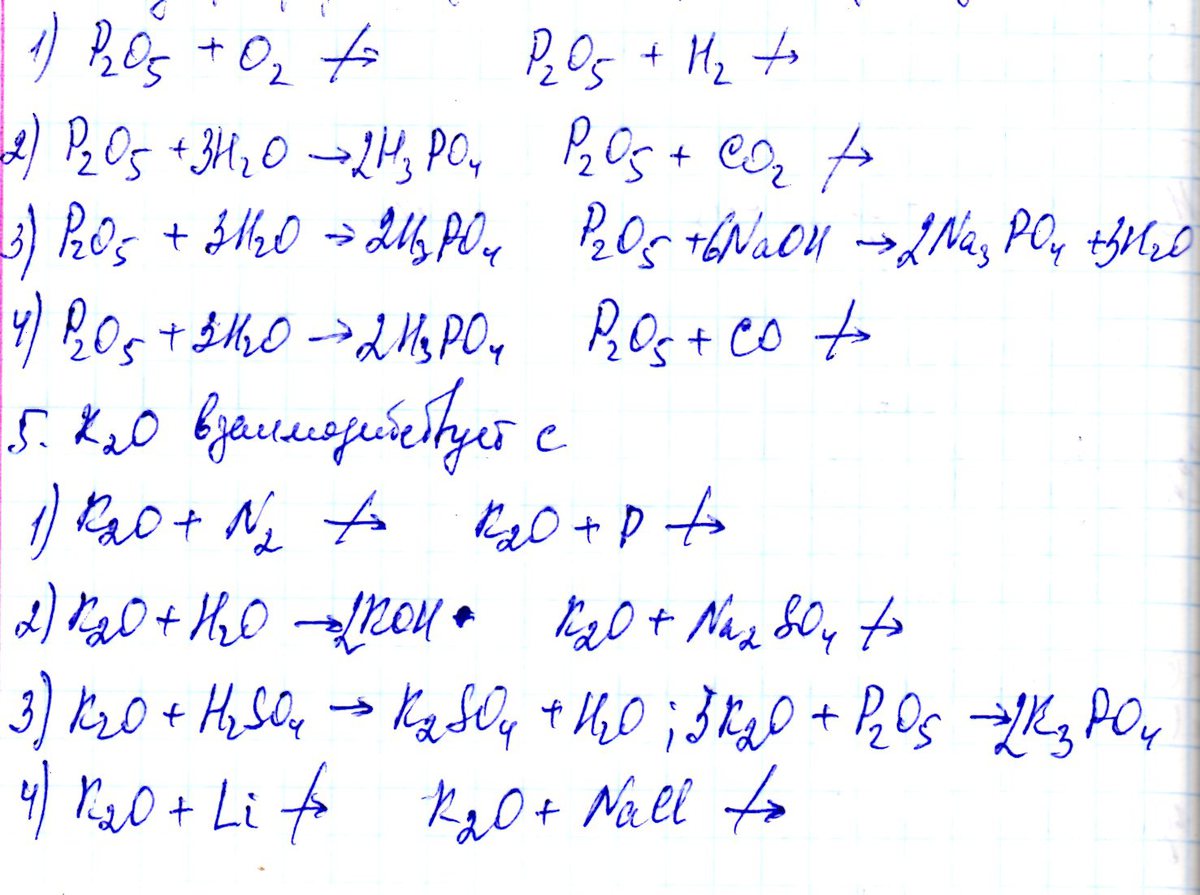 1) P₂O₅ + O₂ ↛ P₂O₅ + H₂ ↛
2) P₂O₅ + 3H₂O → 2H₃PO₄ P₂O₅ + CO₂ ↛
3) P₂O₅ + 3H₂O → 2H₃PO₄ P₂O₅ + 6NaOH → 2Na₃PO₄ + 3H₂O
4) P₂O₅ + 3H₂O → 2H₃PO₄ P₂O₅ + CO ↛
5. K₂O взаимодействует с
1) K₂O + N₂ ↛ K₂O + P ↛
2) K₂O + H₂O → 2KOH K₂O + Na₂SO₄ ↛
3) K₂O + H₂SO₄ → K₂SO₄ + H₂O ; 3K₂O + P₂O₅ → 2K₃PO₄
4) K₂O + Li ↛ K₂O + NaCl ↛